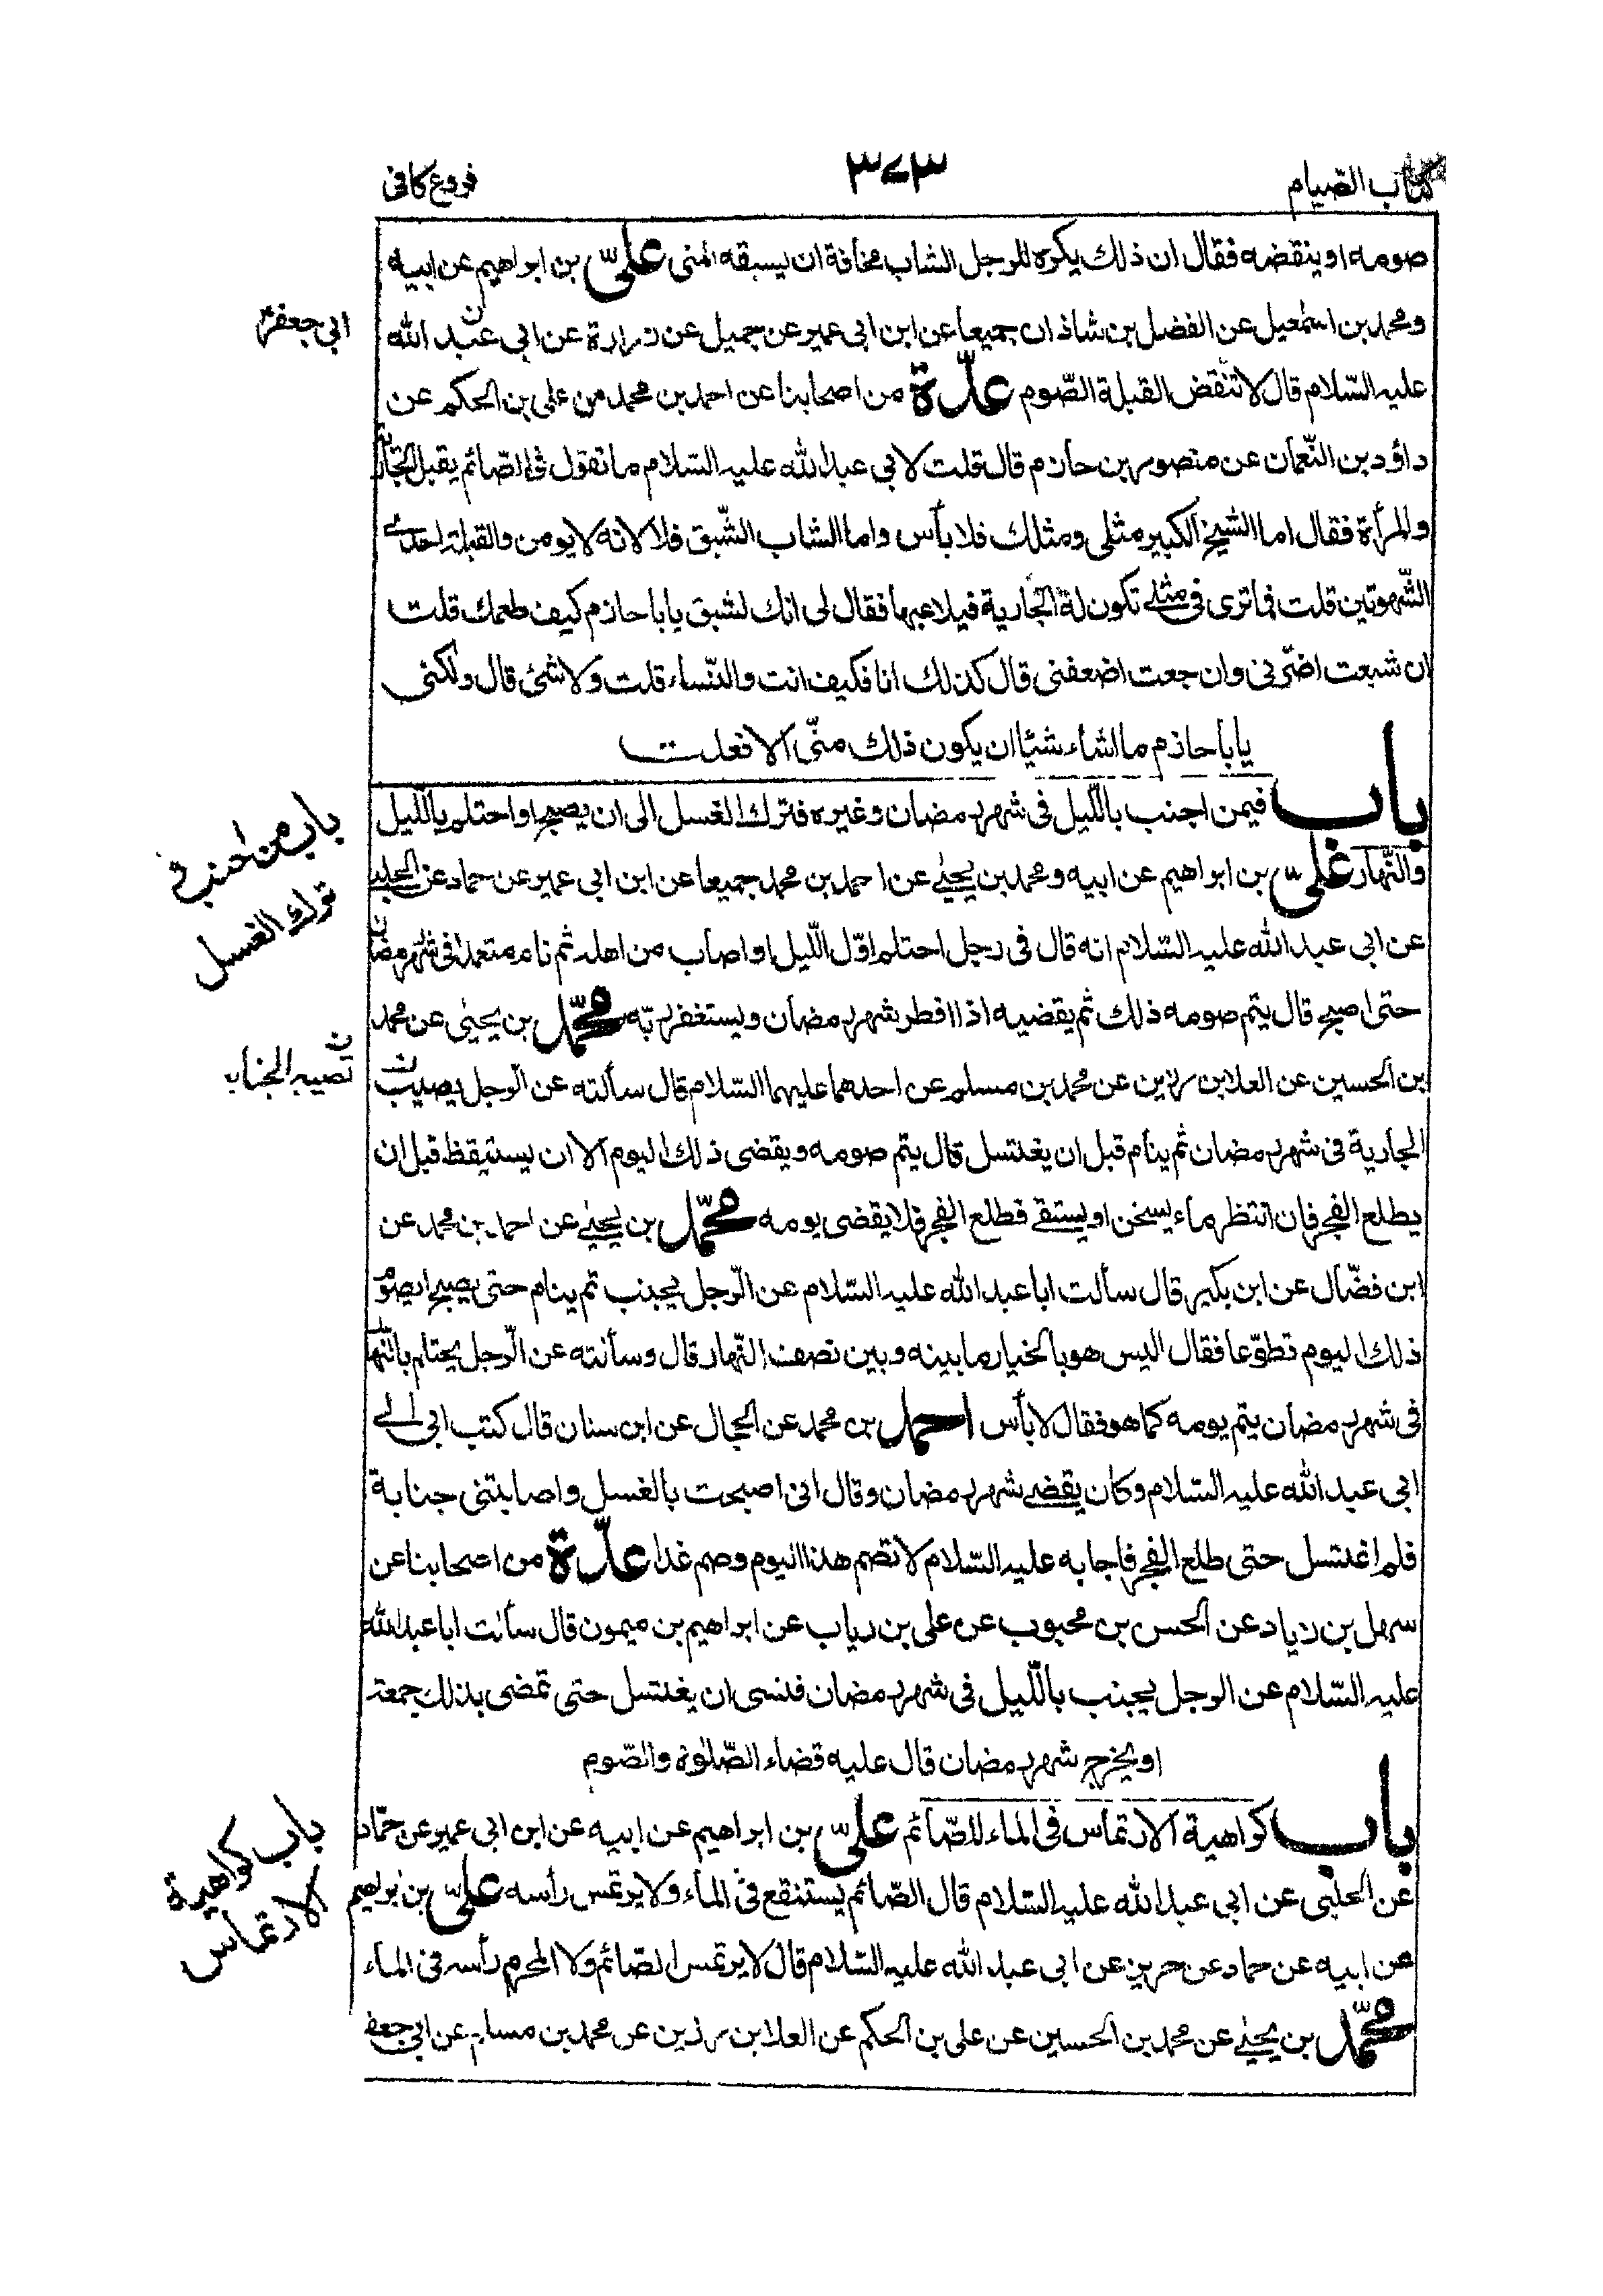 كتاب الصيام
٣٧٣
فروع كافى
صومه او ينقضه فقال ان ذلك يكره للرجل الشاب مخافة ان يسبقه المنى علىّ بن ابراهيم عن ابيه
ومحمد بن اسمٰعيل عن الفضل بن شاذان جميعا عن ابن ابى عمير عن جميل عن زرارة عن ابى عبد الله
ابى جعفر
عليه السّلام قال لا تنقض القبلة الصّوم عدّة من اصحابنا عن احمد بن محمد عن على بن الحكم عن
داؤد بن النّعمان عن منصور بن حازم قال قلت لابى عبد الله عليه السّلام ما تقول فى الصّائم يقبل الجارية
والمرأة فقال اما الشيخ الكبير مثلى ومثلك فلا بأس واما الشاب الشّبق فلا لانه لا يومن والقبلة احدى
الشّهوتين قلت فما ترى فى مثلى تكون له الجارية فيلاعبها فقال لى انك لشبق يا با حازم كيف طعمك قلت
ان شبعت اضرّنى وان جعت اضعفنى قال كذلك انا فكيف انت والنّساء قلت ولا شئ قال ولكنى
يا با حازم ما اشاء شيئا ان يكون ذلك منّى الا فعلت
باب فيمن اجنب باللّيل فى شهر رمضان وغيره فترك الغسل الى ان يصبح او احتلم باللّيل
باب من اجنب فى
ترك الغسل
والنّهار علىّ بن ابراهيم عن ابيه ومحمد بن يحيٰى عن احمد بن محمد جميعا عن ابن ابى عمير عن حماد عن الحلبى
عن ابى عبد الله عليه السّلام انه قال فى رجل احتلم اوّل اللّيل او اصاب من اهله ثم نام متعمدا فى شهر رمضان
حتى اصبح قال يتم صومه ذلك ثم يقضيه اذا افطر شهر رمضان ويستغفر ربّه محمّد بن يحيٰى عن محمد
بن الحسين عن العلا بن رزين عن محمد بن مسلم عن احدهما عليهما السّلام قال سألته عن الرّجل يصيب
تصيبه الجنابة
الجارية فى شهر رمضان ثم ينام قبل ان يغتسل قال يتم صومه ويقضى ذلك اليوم الا ان يستيقظ قبل ان
يطلع الفجر فان انتظر ماء يسخن او يستقى فطلع الفجر فلا يقضى يومه محمّد بن يحيٰى عن احمد بن محمد عن
ابن فضّال عن ابن بكير قال سألت ابا عبد الله عليه السّلام عن الرّجل يجنب ثم ينام حتى يصبح ايصوم
ذلك اليوم تطوّعا فقال اليس هو بالخيار ما بينه وبين نصف النّهار قال وسألته عن الرّجل يحتلم بالنّهار
فى شهر رمضان يتم يومه كما هو فقال لا بأس احمد بن محمد عن الحجال عن ابن سنان قال كتب ابى الى
ابى عبد الله عليه السّلام وكان يقضى شهر رمضان وقال انى اصبحت بالغسل واصابتنى جنابة
فلم اغتسل حتى طلع الفجر فاجابه عليه السّلام لا تصم هذا اليوم وصم غدا عدّة من اصحابنا عن
سهل بن زياد عن الحسن بن محبوب عن على بن رياب عن ابراهيم بن ميمون قال سألت ابا عبد الله
عليه السّلام عن الرجل يجنب باللّيل فى شهر رمضان فنسى ان يغتسل حتى تمضى بذلك جمعة
او يخرج شهر رمضان قال عليه قضاء الصّلوٰة والصّوم
باب كراهية الارتماس فى الماء للصّائم علىّ بن ابراهيم عن ابيه عن ابن ابى عمير عن حمّاد
باب كراهية
الارتماس
عن الحلبى عن ابى عبد الله عليه السّلام قال الصّائم يستنقع فى الماء ولا يرتمس رأسه علىّ بن ابراهيم
عن ابيه عن حماد عن حريز عن ابى عبد الله عليه السّلام قال لا يرتمس الصّائم ولا المحرم رأسه فى الماء
محمّد بن يحيٰى عن محمد بن الحسين عن على بن الحكم عن العلا بن رزين عن محمد بن مسلم عن ابى جعفر